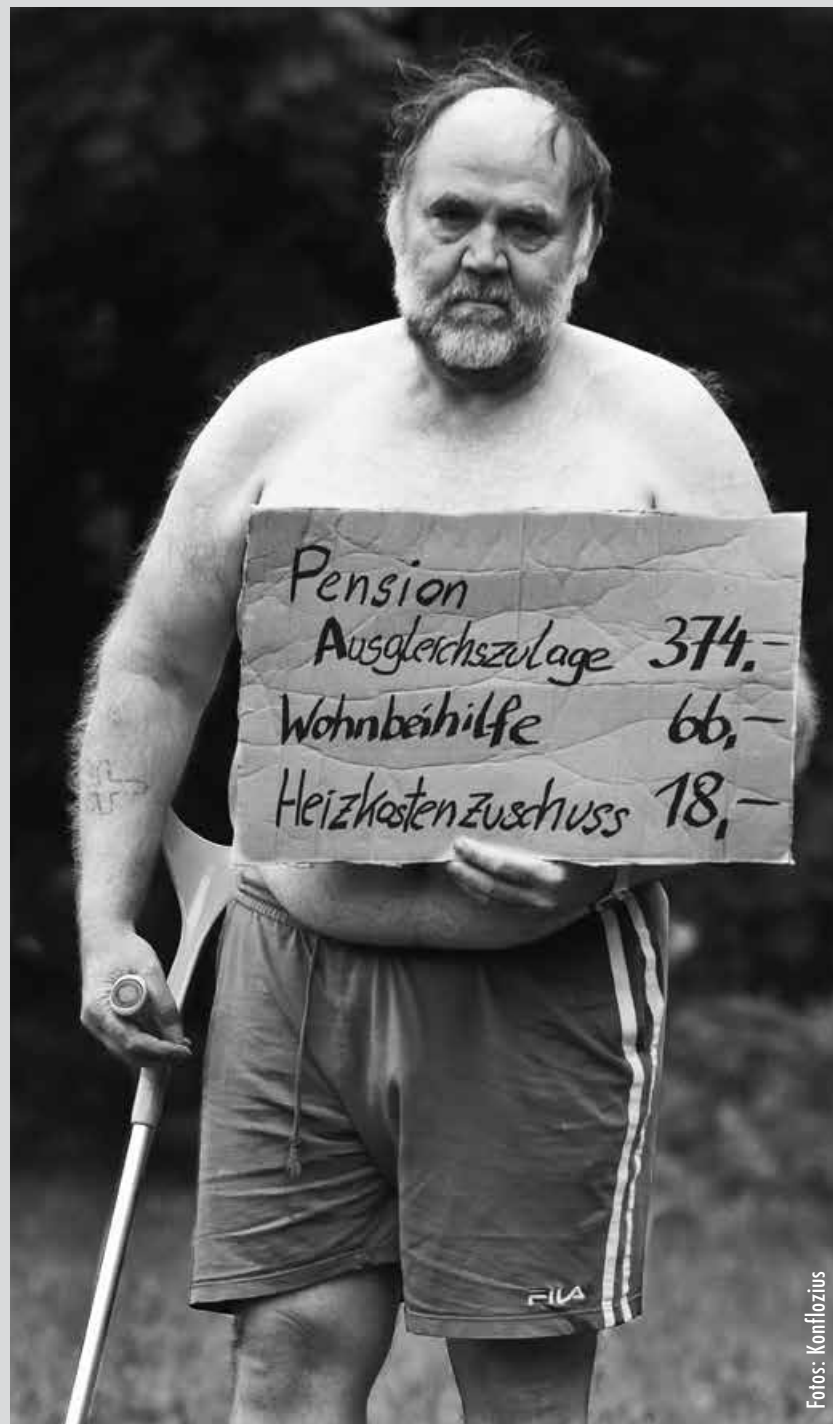 Pension
Ausgleichszulage 374.-
Wohnbeihilfe 66,-
Heizkostenzuschuss 18,-
FILA
Fotos: Konflozius